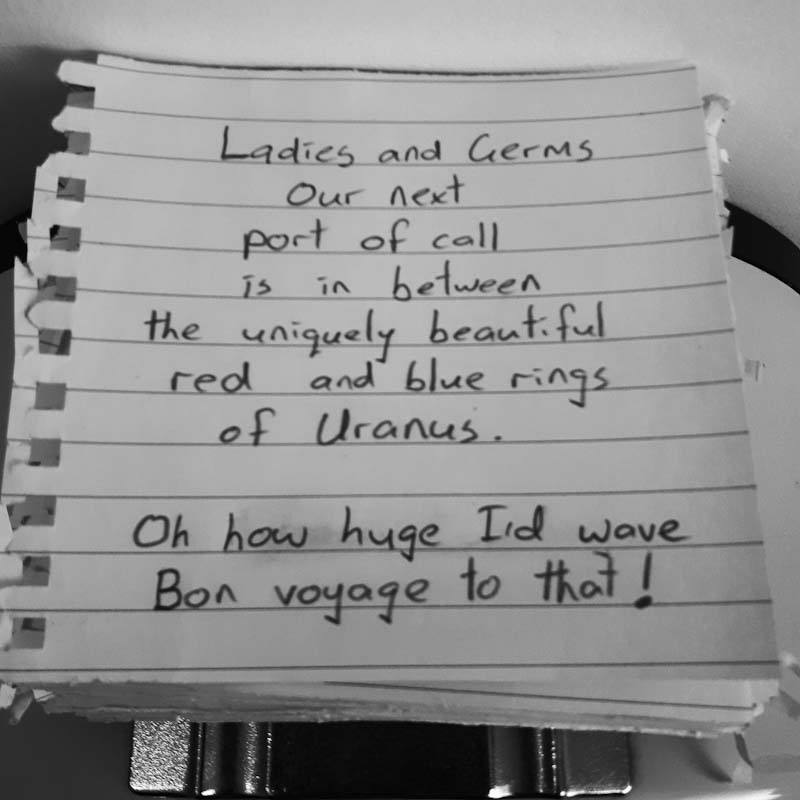 Ladies and Germs
Our next
port of call
is in between
the uniquely beautiful
red and blue rings
of Uranus.
Oh how huge I'd wave
Bon voyage to that!